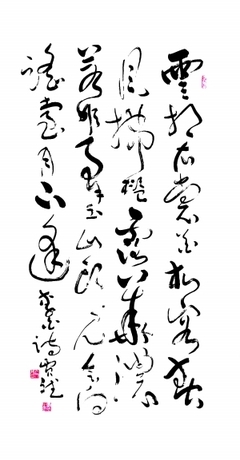 雲想衣裳花想容春
風拂檻露華濃
若非群玉山頭見會向
瑤臺月下逢 李白詩